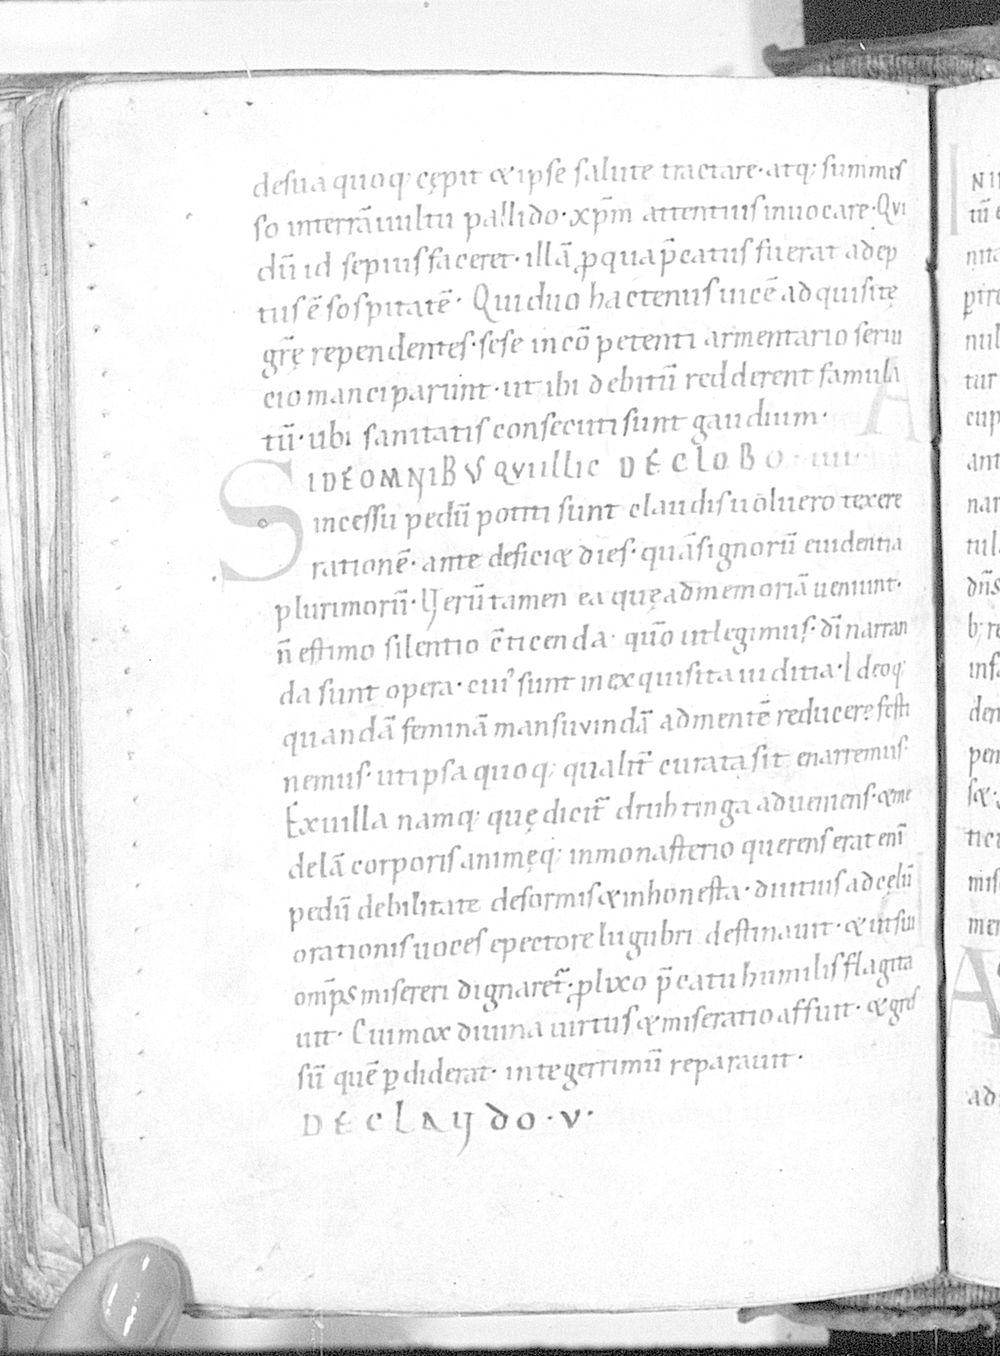 desua quoq; cępit & ipse salute tractare· atq; summis
so interrā uultu pallido· xp̄m attentius inuocare· Qui
dū id sepius faceret· illā ꝑ qua p̄catus fuerat adep
tus ē sospitatē· Qui duo hactenus uicē adquisitę
grę̄ rependentes· sese incōpetenti armentario serui
cio manciparunt· ut ibi debitū redderent famula
tū· ubi sanitatis consecuti sunt gaudium·
SI DE OMNIBUS QUI ILLIC DE CLOBO· IIII
incessu pedū potiti sunt claudis uoluero texere
rationē· ante defici& dies· quā signorū euidentia
plurimorū· Uerū tamen ea quę admemoriā ueniunt·
n̄ estimo silentio c̄ticenda· quō ut legimus· dī narran
da sunt opera· cui' sunt inexquisita iuditia· Ideoq;
quandā feminā mansuuindā admentē reducere festi
nemus· ut ipsa quoq; qualit̄ curata sit enarremus·
Ex uilla namq; quę dicit̄ druhtinga adueniens· &me
delā corporis animęq; inmonasterio querens erat enī
pedū debilitate deformis & inhonesta· diutius ad cęlū
orationis uoces epectore lugubri destinauit· & ut sui
omp̄s misereri dignaret̄· ꝓlixo p̄catu humilis flagita
uit· Cui mox diuina uirtus & miseratio affuit· & gres
sū quē ꝑdiderat· integerrimū reparauit·
DE CLAUDO· V·